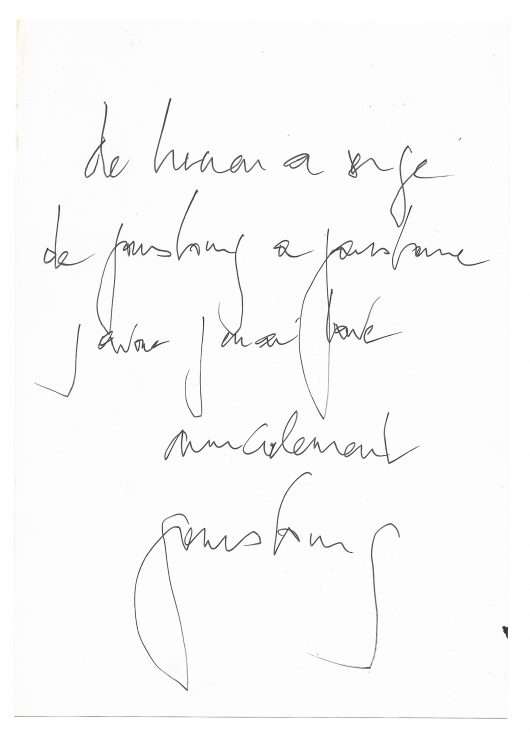 de lucien a serge
de gainsbourg a gainsbarre
javoue jen ai bavé
amicalement
gainsbourg